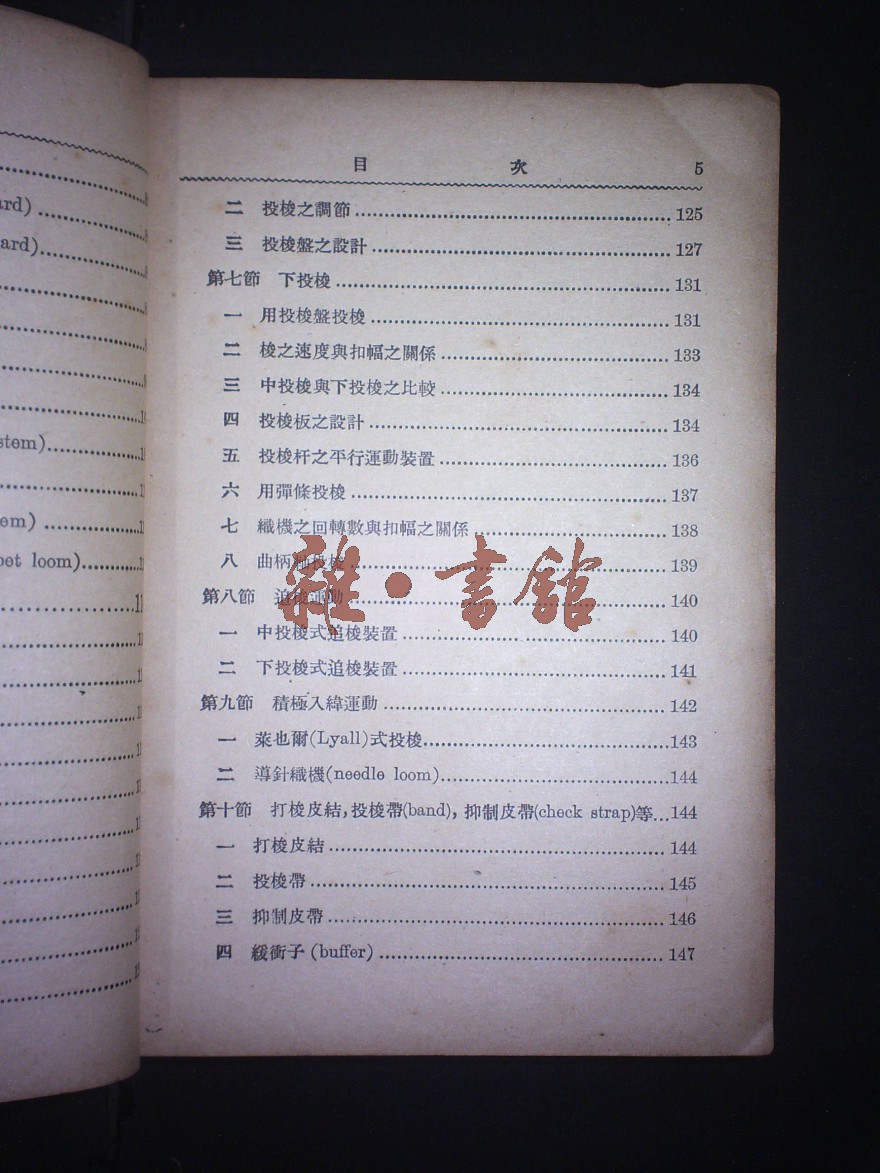 ard)
ard)
stem)
em)
oet loom)
目 次 5
二 投梭之調節 125
三 投梭盤之設計 127
第七節 下投梭 131
一 用投梭盤投梭 131
二 梭之速度與扣幅之關係 133
三 中投梭與下投梭之比較 134
四 投梭板之設計 134
五 投梭杆之平行運動裝置 136
六 用彈條投梭 137
七 織機之回轉數與扣幅之關係 138
八 曲柄軸投梭 139
第八節 追梭運動 140
一 中投梭式追梭裝置 140
二 下投梭式追梭裝置 141
第九節 積極入緯運動 142
一 萊也爾(Lyall)式投梭 143
二 導針織機(needle loom) 144
第十節 打梭皮結,投梭帶(band),抑制皮帶(check strap)等 144
一 打梭皮結 144
二 投梭帶 145
三 抑制皮帶 146
四 緩衝子(buffer) 147
雜·書館